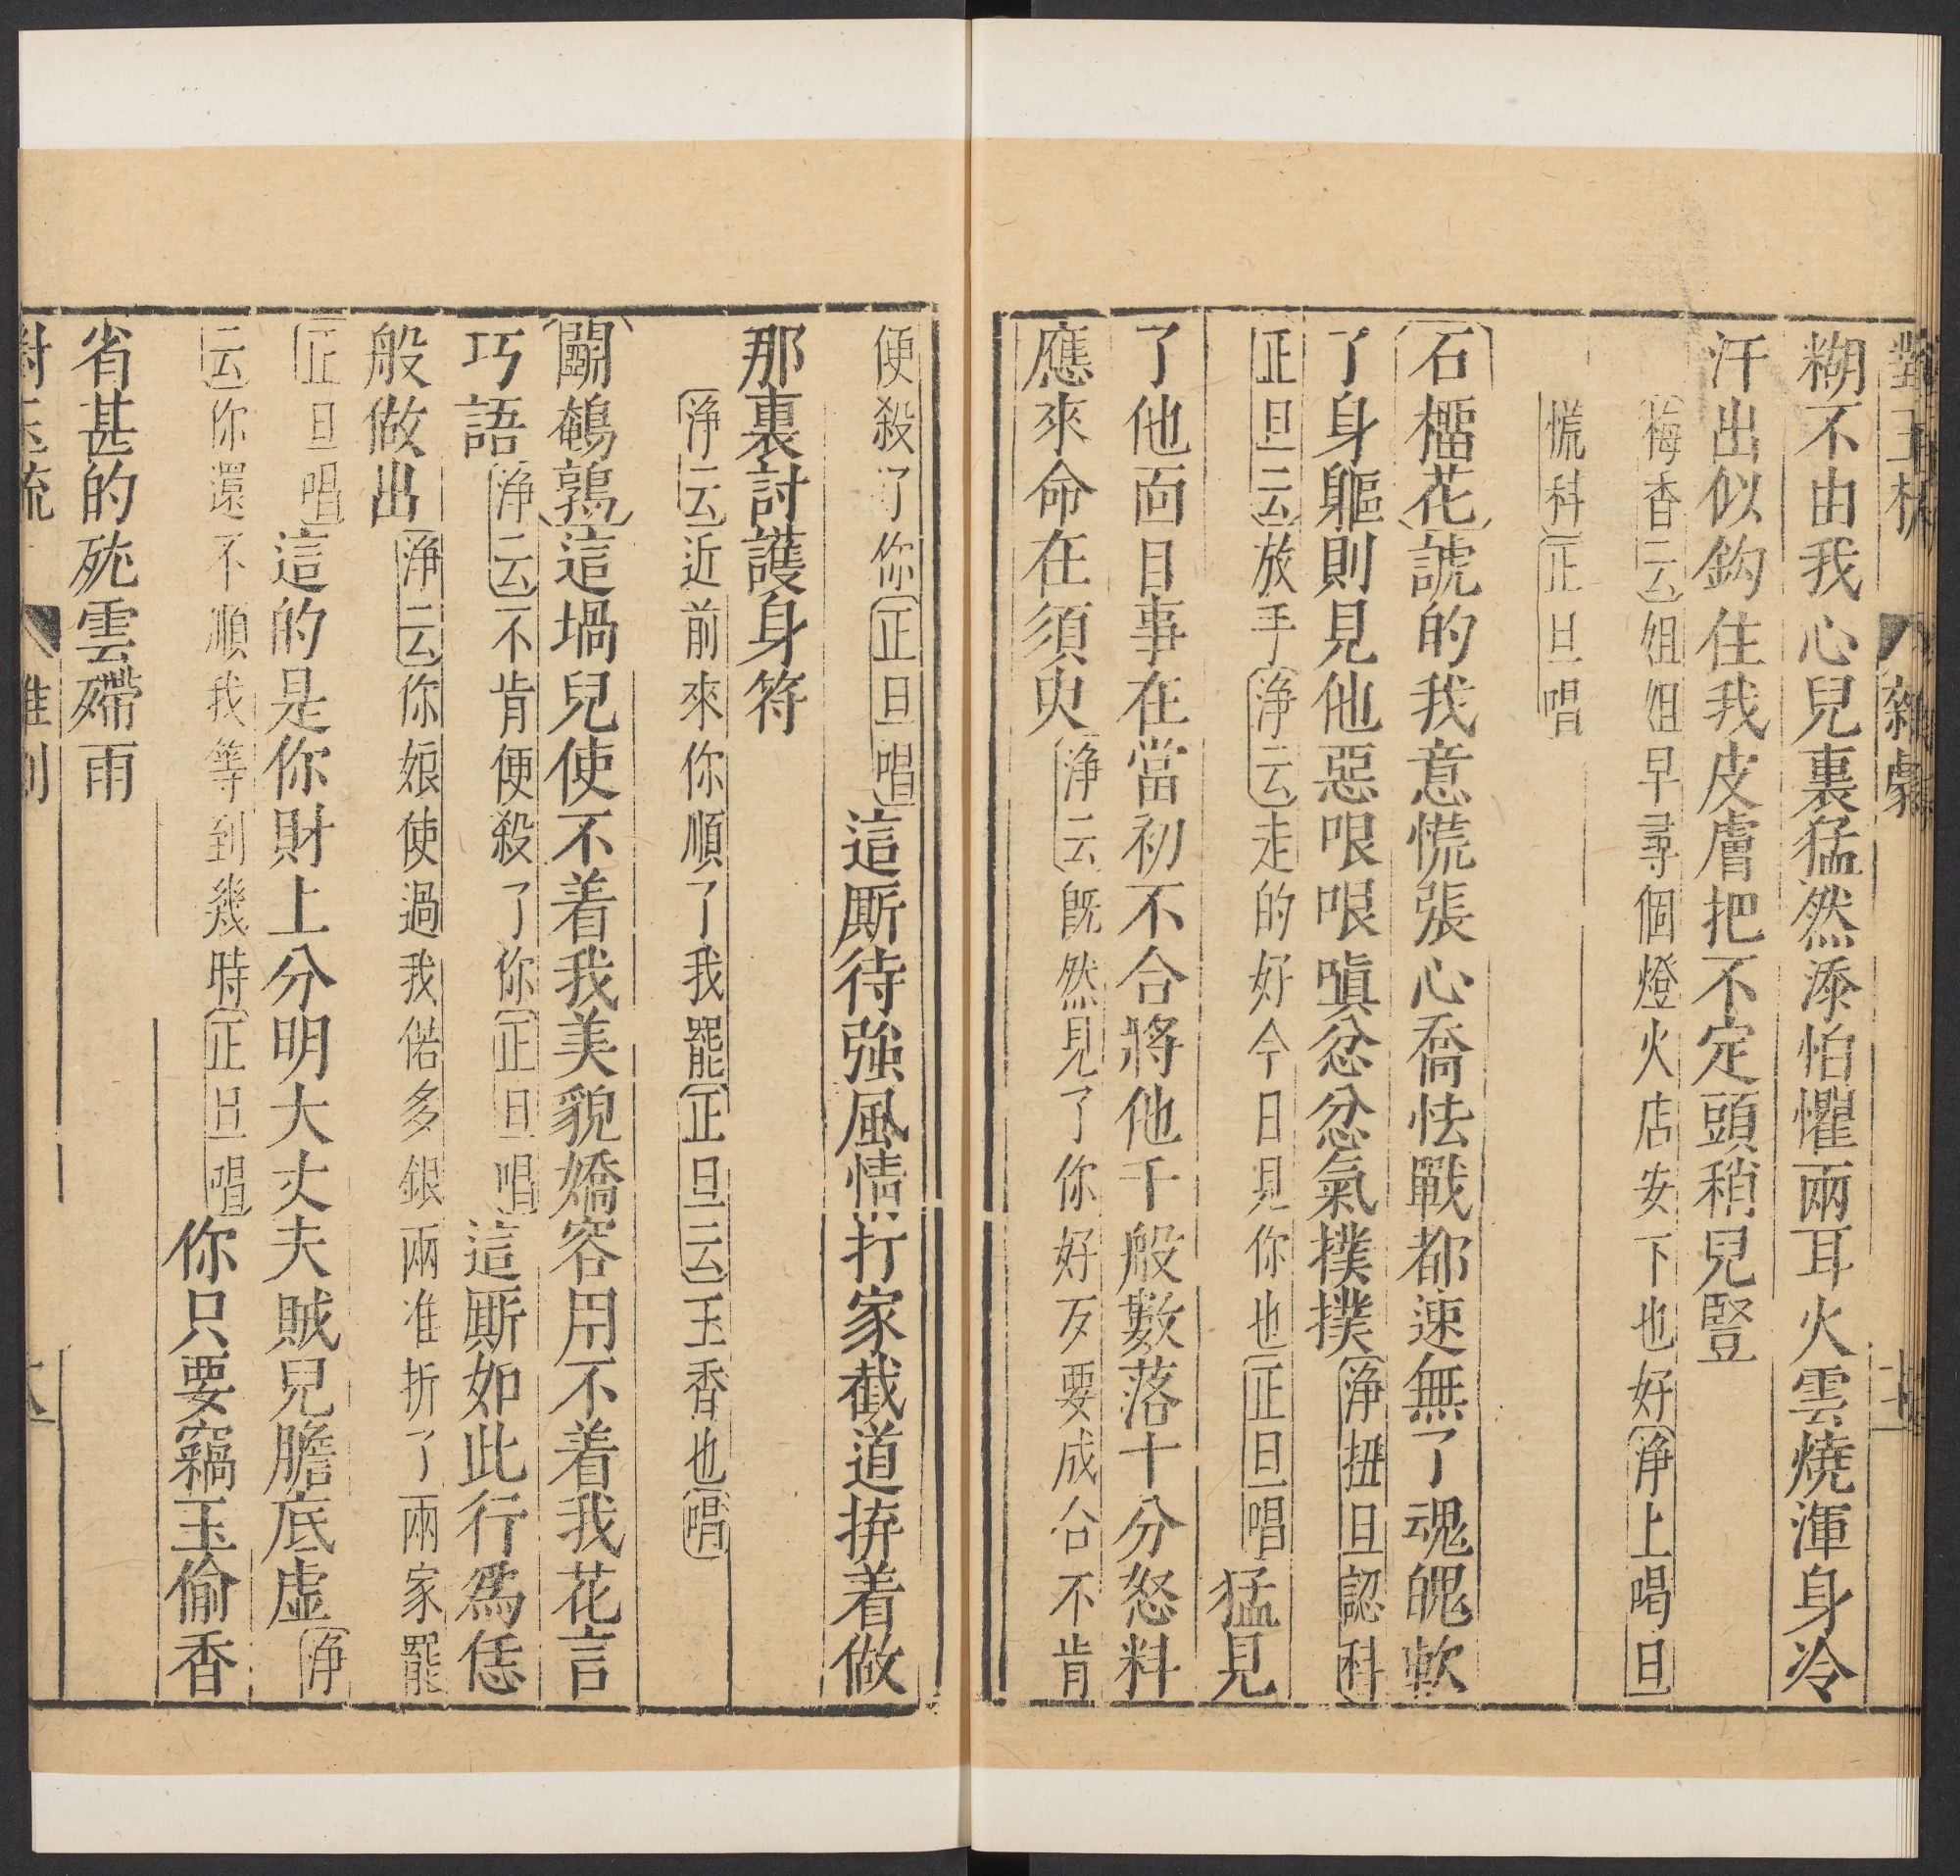 對玉梳 雜劇
糊不由我心兒裏猛然添怕懼兩耳火雲燒渾身冷
汗出似鈎住我皮膚把不定頭稍兒豎
梅香云姐姐早尋個燈火店安下也好淨上喝旦
慌科正旦唱
石榴花諕的我意慌張心喬怯戰都速無了魂魄軟
了身軀則見他惡哏哏嗔忿忿氣撲撲淨扭旦認科
正旦云放手淨云走的好今日見你也正旦唱猛見
了他面目事在當初不合將他千般數落十分怒料
應來命在須臾淨云旣然見了你好歹要成合不肯
便殺了你正旦唱這厮待強風情打家截道拚着做
那裏討護身符
淨云近前來你順了我罷正旦云玉香也唱
鬬鵪鶉這堝兒使不着我美貌嬌容用不着我花言
巧語淨云不肯便殺了你正旦唱這厮如此行爲恁
般做出淨云你娘使過我偌多銀兩准折了兩家罷
正旦唱這的是你財上分明大丈夫賊兒膽底虛淨
云你還不順我等到幾時正旦唱你只要竊玉偷香
省甚的殢雲殢雨
對玉梳 雜劇